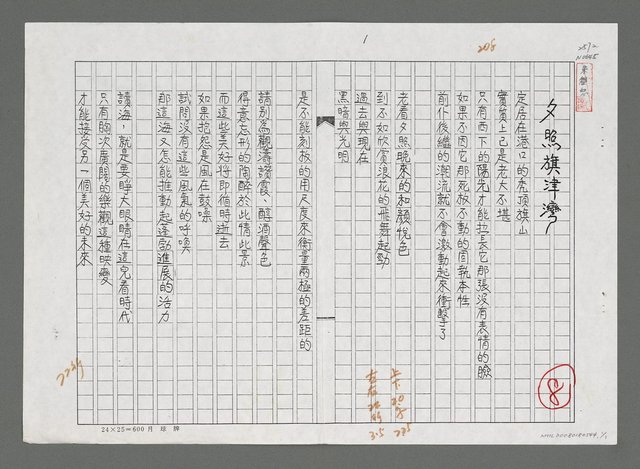 1
208
2572
N0045
夕照旗津灣
定居在港口的虎頂旗山
實質上已是老大不堪
只有西下的陽光才能拉長它那張沒有表情的臉
如果不因它那死板不動的固執本性
前仆後繼的潮流就不會激動起來衝擊了
老看夕照晚來的和顏悅色
到不如欣賞浪花的飛舞起勁
過去與現在
黑暗與光明
是不能刻板的用尺度來衡量兩極的差距的
請別為觀濤讀食、醇酒聲色
得意忘形的陶醉於此情此景
而這些美好將即循時逝去
如果抱怨是風在鼓噪
試問沒有這些風氣的呼喚
那這海又怎能推動起蓬勃進展的活力
讀海，就是要睜大眼睛在這兒看時代
只有胸次廣闊的樂觀這種映變
才能接受另一個美好的未來
8
24×25=600月球牌
上下
左右
3.5
NMTL20080180544